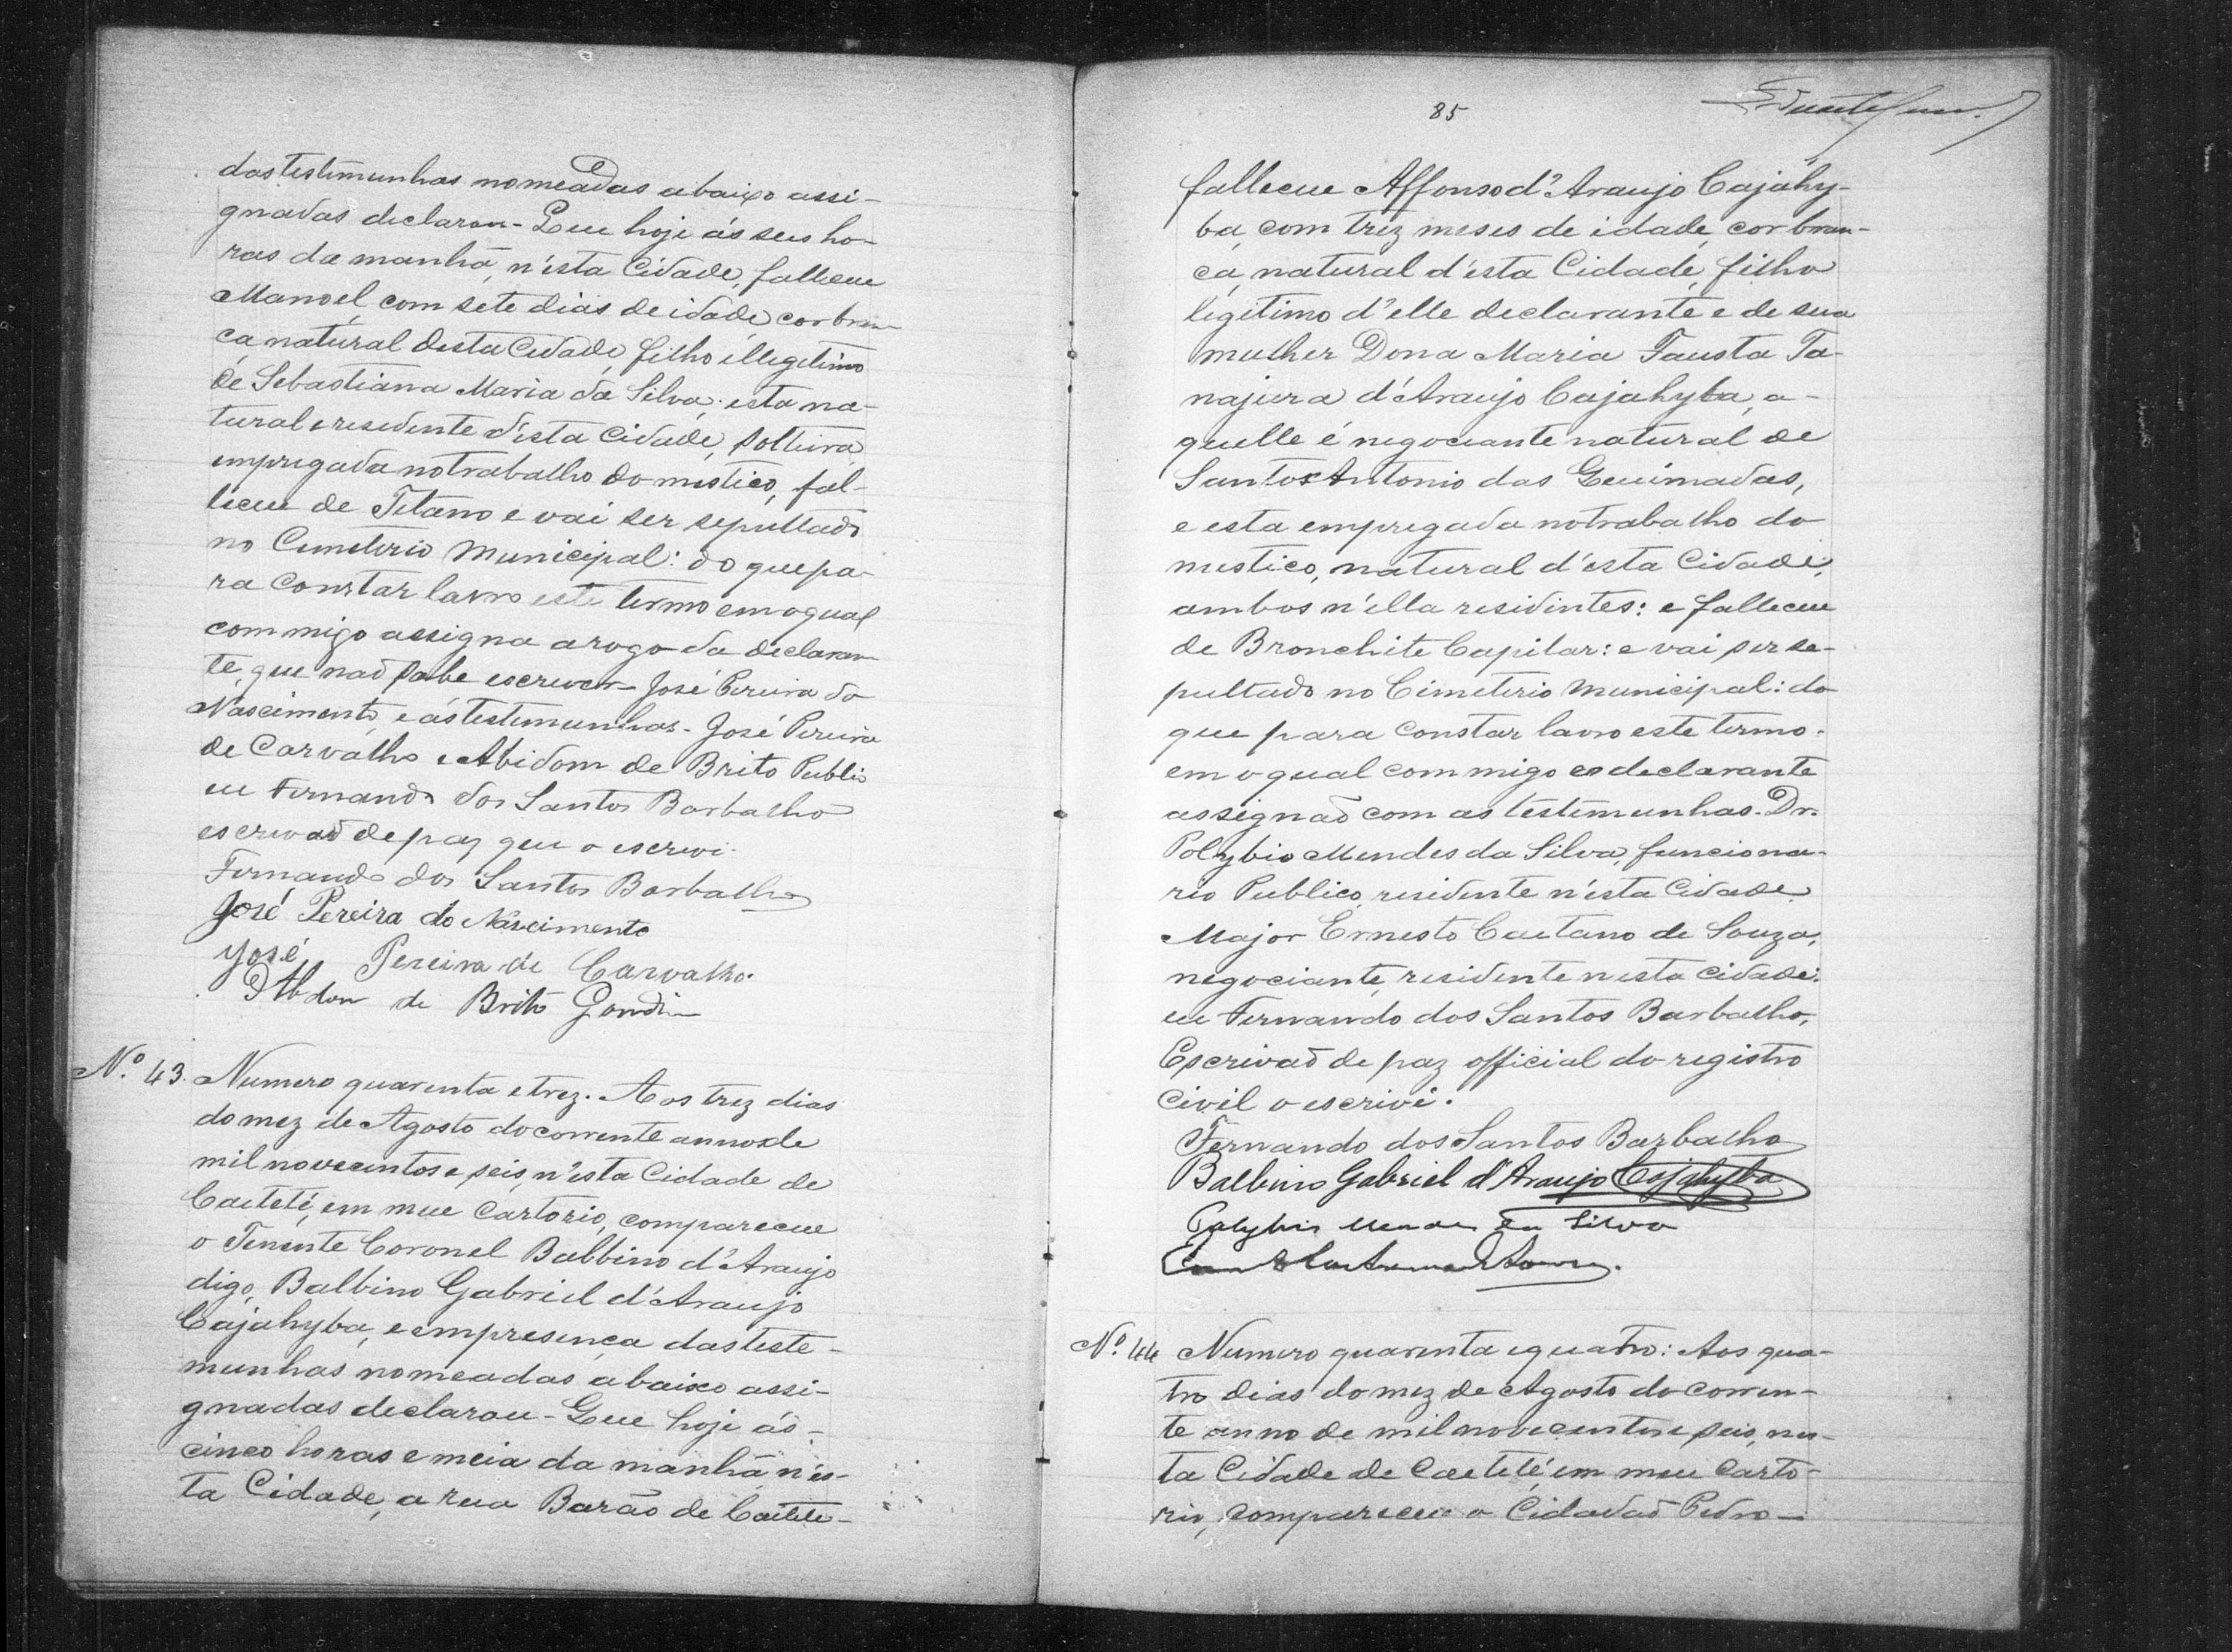 das testimunhas nomeadas abaixo assi-
gnadas declarou - Que hoje ás seis ho-
ras da manhã, n'esta Cidade, falleceu
Manoel, com sete dias de idade, cor bran-
ca natural desta Cidade, filho illegitimo
de Sebastiana Maria da Silva; esta na-
tural e residente d'esta Cidade, solteira,
empregada no trabalho domestico, fal-
leceu de Tetano e vai ser sepultado
no Cemeterio Municipal: do que pa-
ra constar lavro este termo em o qual
commigo assigna a rogo da declaran-
te, que naõ sabe escrever - José Pereira do
Nascimento, e ás testemunhas - José Pereira
de Carvalho e Abidom de Brito Publio
eu Fernando dos Santos Barbalho
escrivaõ de paz que o escrevi.
Fernando dos Santos Barbalho
José Pereira do Nascimento
José Pereira de Carvalho.
Abdon de Brito Gondim
Nº 43. Numero quarenta e trez. Aos trez dias
do mez de Agosto do corrente anno de
mil novecentos e seis, n'esta Cidade de
Caeteté, em meu Cartorio, compareceu
o Tenente Coronel Balbino d'Araujo
digo, Balbino Gabriel d'Araujo
Cajahyba, e em presença das teste-
munhas nomeadas abaixo assi-
gnadas declarou - Que hoje ás -
cinco horas e meia da manhã n'es-
ta Cidade, a rua Barão de Caeteté -
85
falleceu Affonso d'Araujo Cajahy-
ba, com trez meses de idade, cor bran-
ca, natural d'esta Cidade, filho
legitimo d'elle declarante e de sua
mulher Dona Maria Fausta Ta-
najura d'Araujo Cajahyba, a-
quelle é negociante natural de
Santo Antonio das Queimadas,
e esta empregada no trabalho do
mestico, natural d'esta Cidade,
ambos n'ella residintes: e falleceu
de Bronchite Capilar: e vai ser se-
pultado no Cimeterio Municipal: do
que para constar lavro este termo.
em o qual commigo eo declarante
assignaõ com as testemunhas. Dr.
Polybio Mendes da Silva, funciona-
rio Publico, residente n'esta Cidade.
Major Ernesto Caetano de Souza,
negociante, residente nesta cidade:
eu Fernando dos Santos Barbalho,
Escrivaõ de paz official do registro
civil o escrivi.
Fernando dos Santos Barbalho
Balbino Gabriel d'Araujo Cajahyba
Polybio Mendes da Silva
Nº 44 Numero quarenta e quatro: Aos qua-
tro dias do mez de Agosto do corren-
te anno de mil novecentos e seis, nes-
ta Cidade de Caeteté em meu Carto-
rio, compareceu o Cidadaõ Pedro -